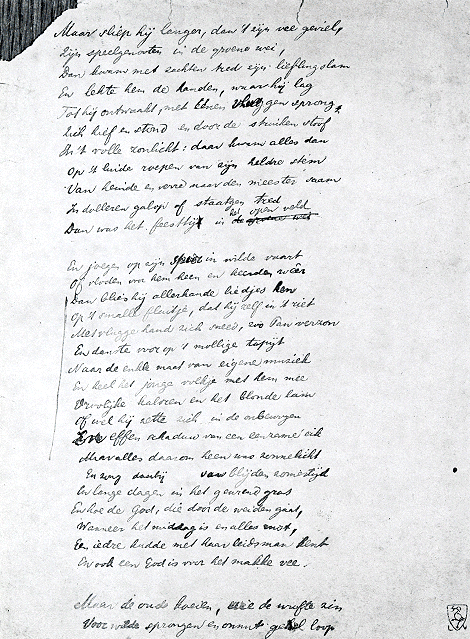 Maar sliep hij langer, dan 't zijn vee geviel,
Zijn speelgenooten in de groene wei,
Dan kwam met zachten tred zijn lieflingslam
En lekte hem de handen, waar hij lag
Tot hij ontwaakt, met éénen vluggen sprong
Zich hief en stond en door de struiken stoof
In 't volle zonlicht: daar kwam alles dan
Op 't luide roepen van zijn heldre stem
Van heinde en verre naar den meester saam
In dolleren galop of staatgen tred
Dan was het feesttijd in het open veld

En joegen op zijn in wilde vaart
Of vloden voor hem heen en keerden weêr
Dan blies hij allerhande liedjes hen
Op 't smalle fluitje, dat hij zelf in 't riet
Met vlugge hand zich sneed, zoo Pan verzon
En danste voor op 't mollige tapijt
Naar de enkle maat van eigene muziek
En heel het jonge volkje met hem mee
Vroolijke kalveren en het blonde lam
Of wel hij zette zich in de
effen schaduw van een eenzame eik
Maar alles daarom heen was zonnelicht
En zong daarbij van blijden zomertijd
En lange dagen in het geurend gras
En hoe de God, die door de weiden gaat,
Wanneer het middag is en alles rust,
Een iedre kudde met haar leidsman kent
En ook een God is voor het makke vee.

Maar de oude koeien, wie de wufte zin
Voor wilde sprongen en onnut geheel loop